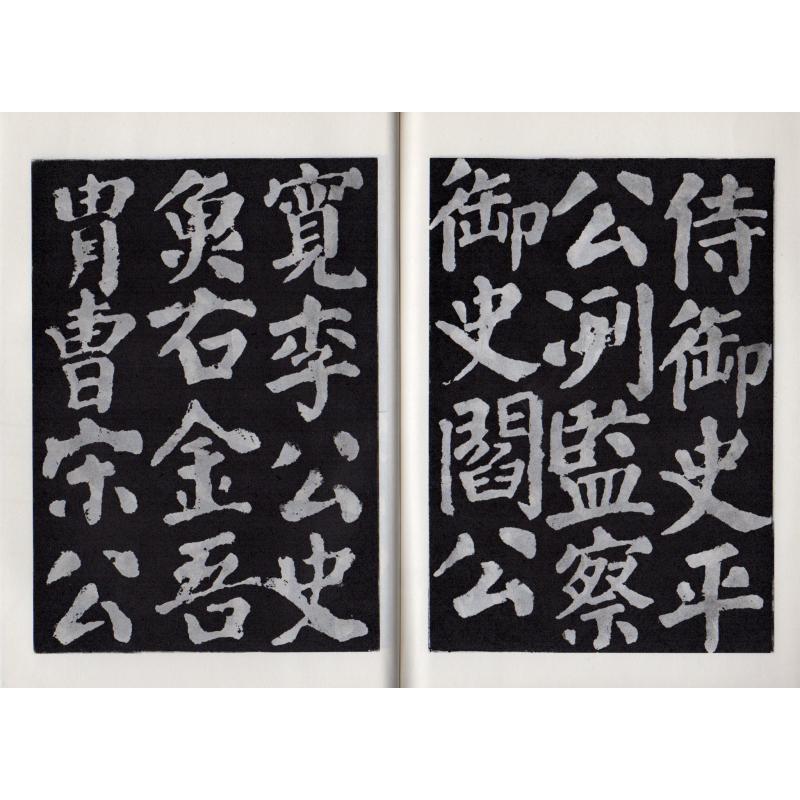 侍御史平
公冽監察
御史閻公
寬李公史
魚右金吾
冑曹宋公